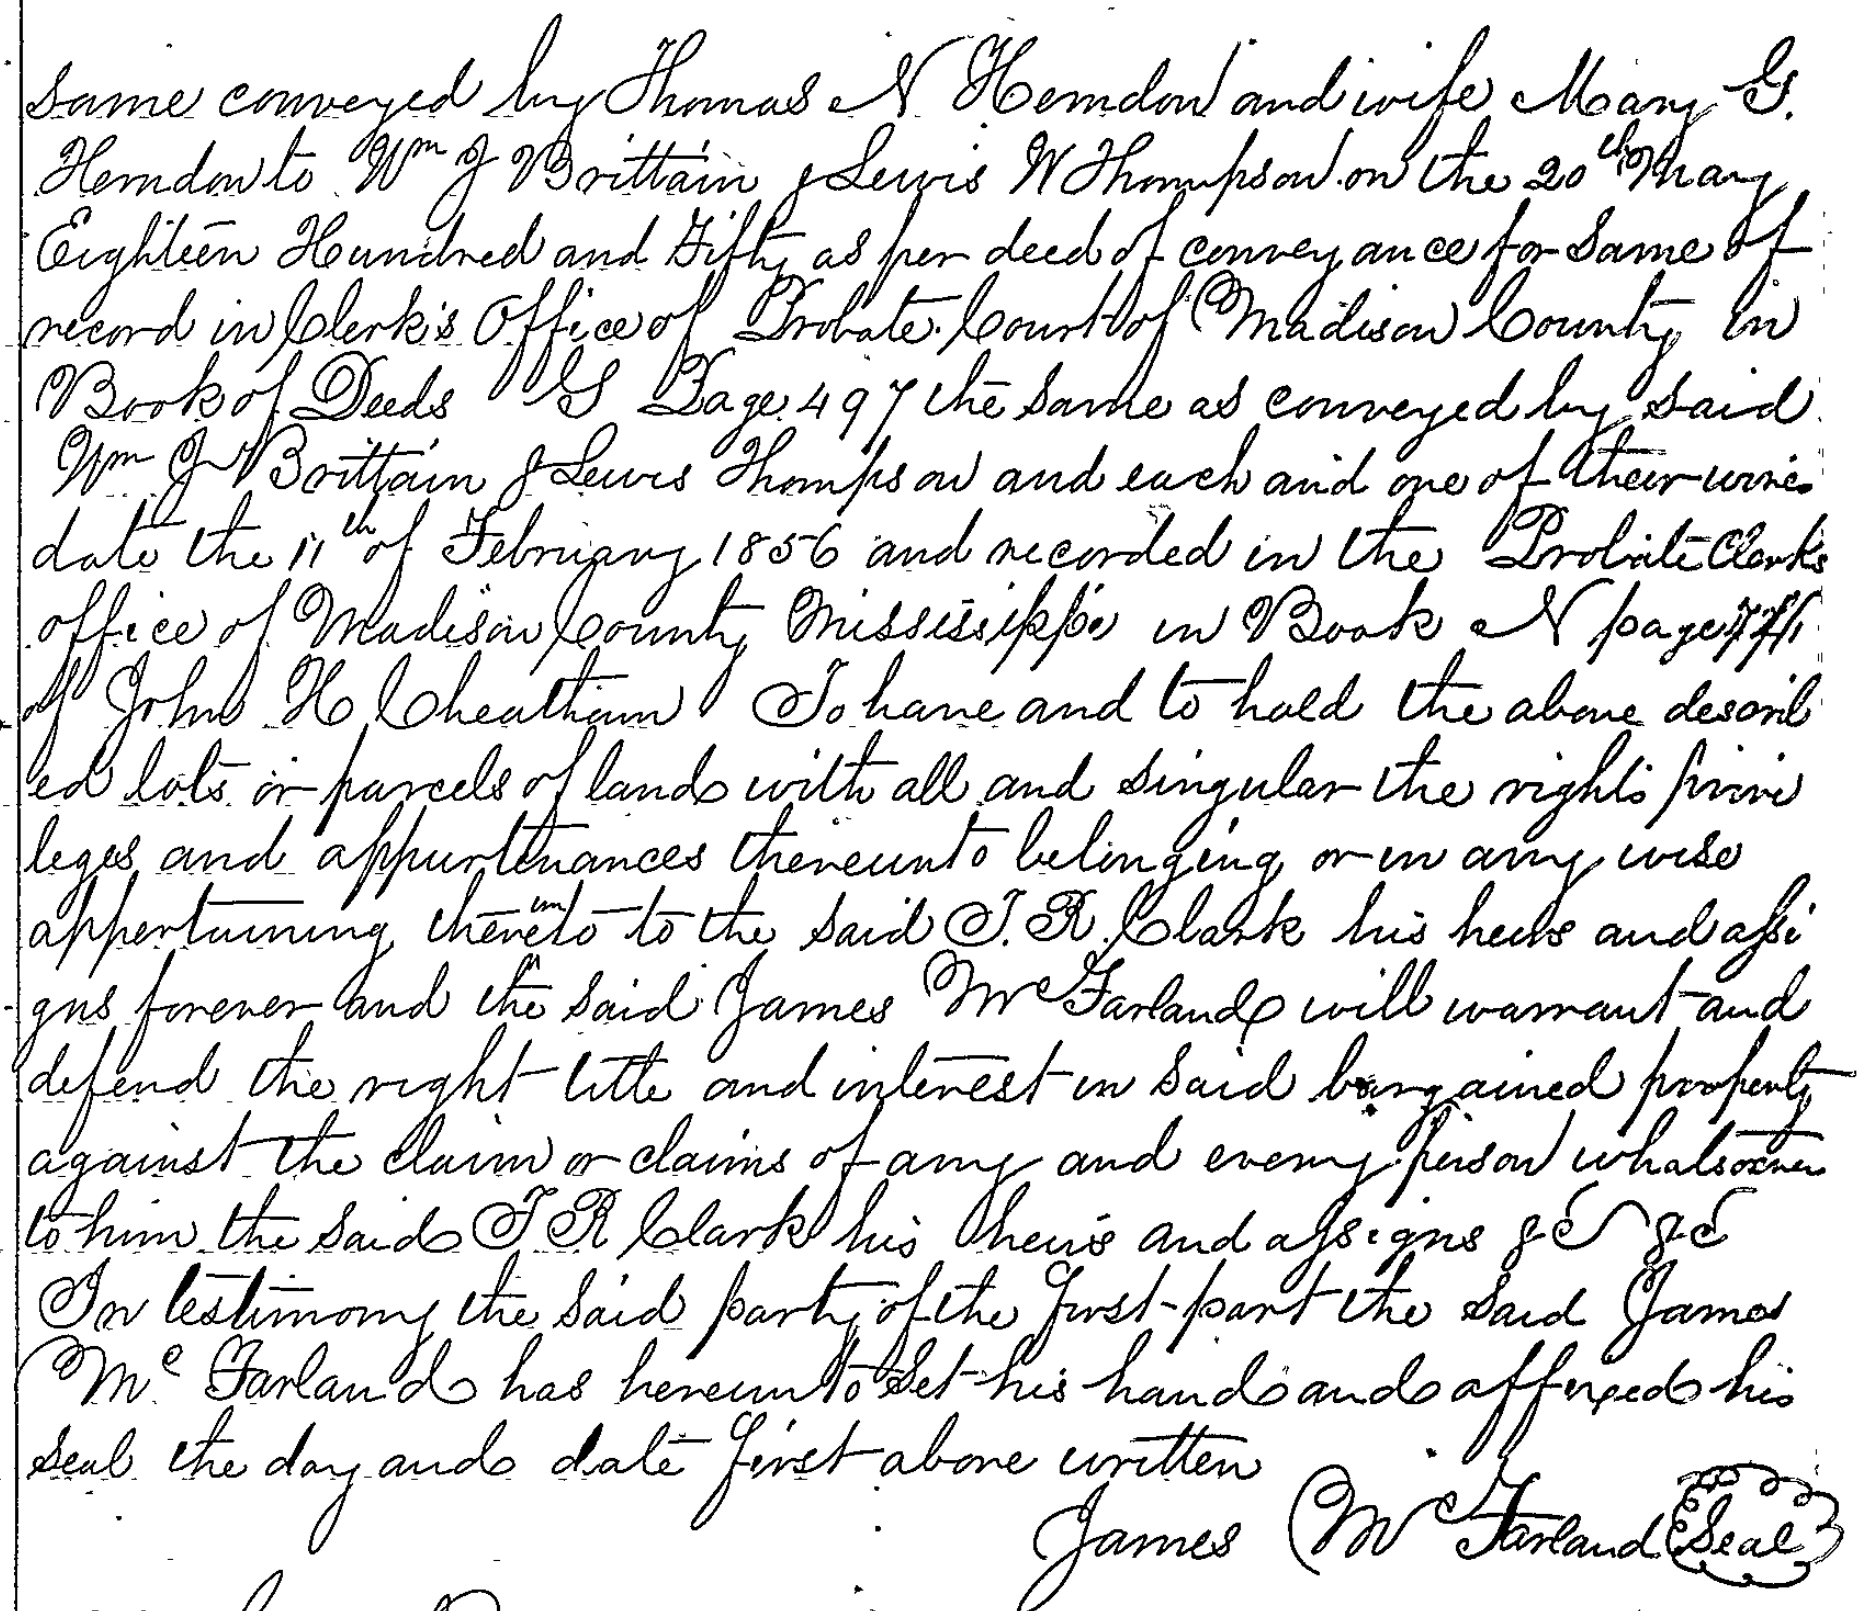 same conveyed by Thomas N Herndon and wife Mary G.
Herndon to Wm J Brittain & Lewis W Thompson on the 20th May
Eighteen Hundred and Fifty as per deed of conveyance for same of
record in Clerk's Office of Probate Court of Madison County in
Book of Deeds G Page 497 the same as conveyed by said
Wm J Brittain & Lewis Thompson and each and one of their wives
date the 11th of February 1856 and recorded in the Probate Clerks
office of Madison County Mississippi in Book N page
of John H Cheatham To have and to hold the above describ
ed lots or parcels of land with all and singular the rights privi
leges and appurtenances thereunto belonging or in any wise
appertaining thereunto to the said T. R. Clark his heirs and assi
gns forever and the said James McFarland will warrant and
defend the right title and interest in said bargained property
against the claim or claims of any and every person whatsoever
to him the said T R Clark his heirs and assigns &c &c
In testimony the said party of the first part the said James
McFarland has hereunto set his hand and affixed his
seal the day and date first above written
James McFarland Seal